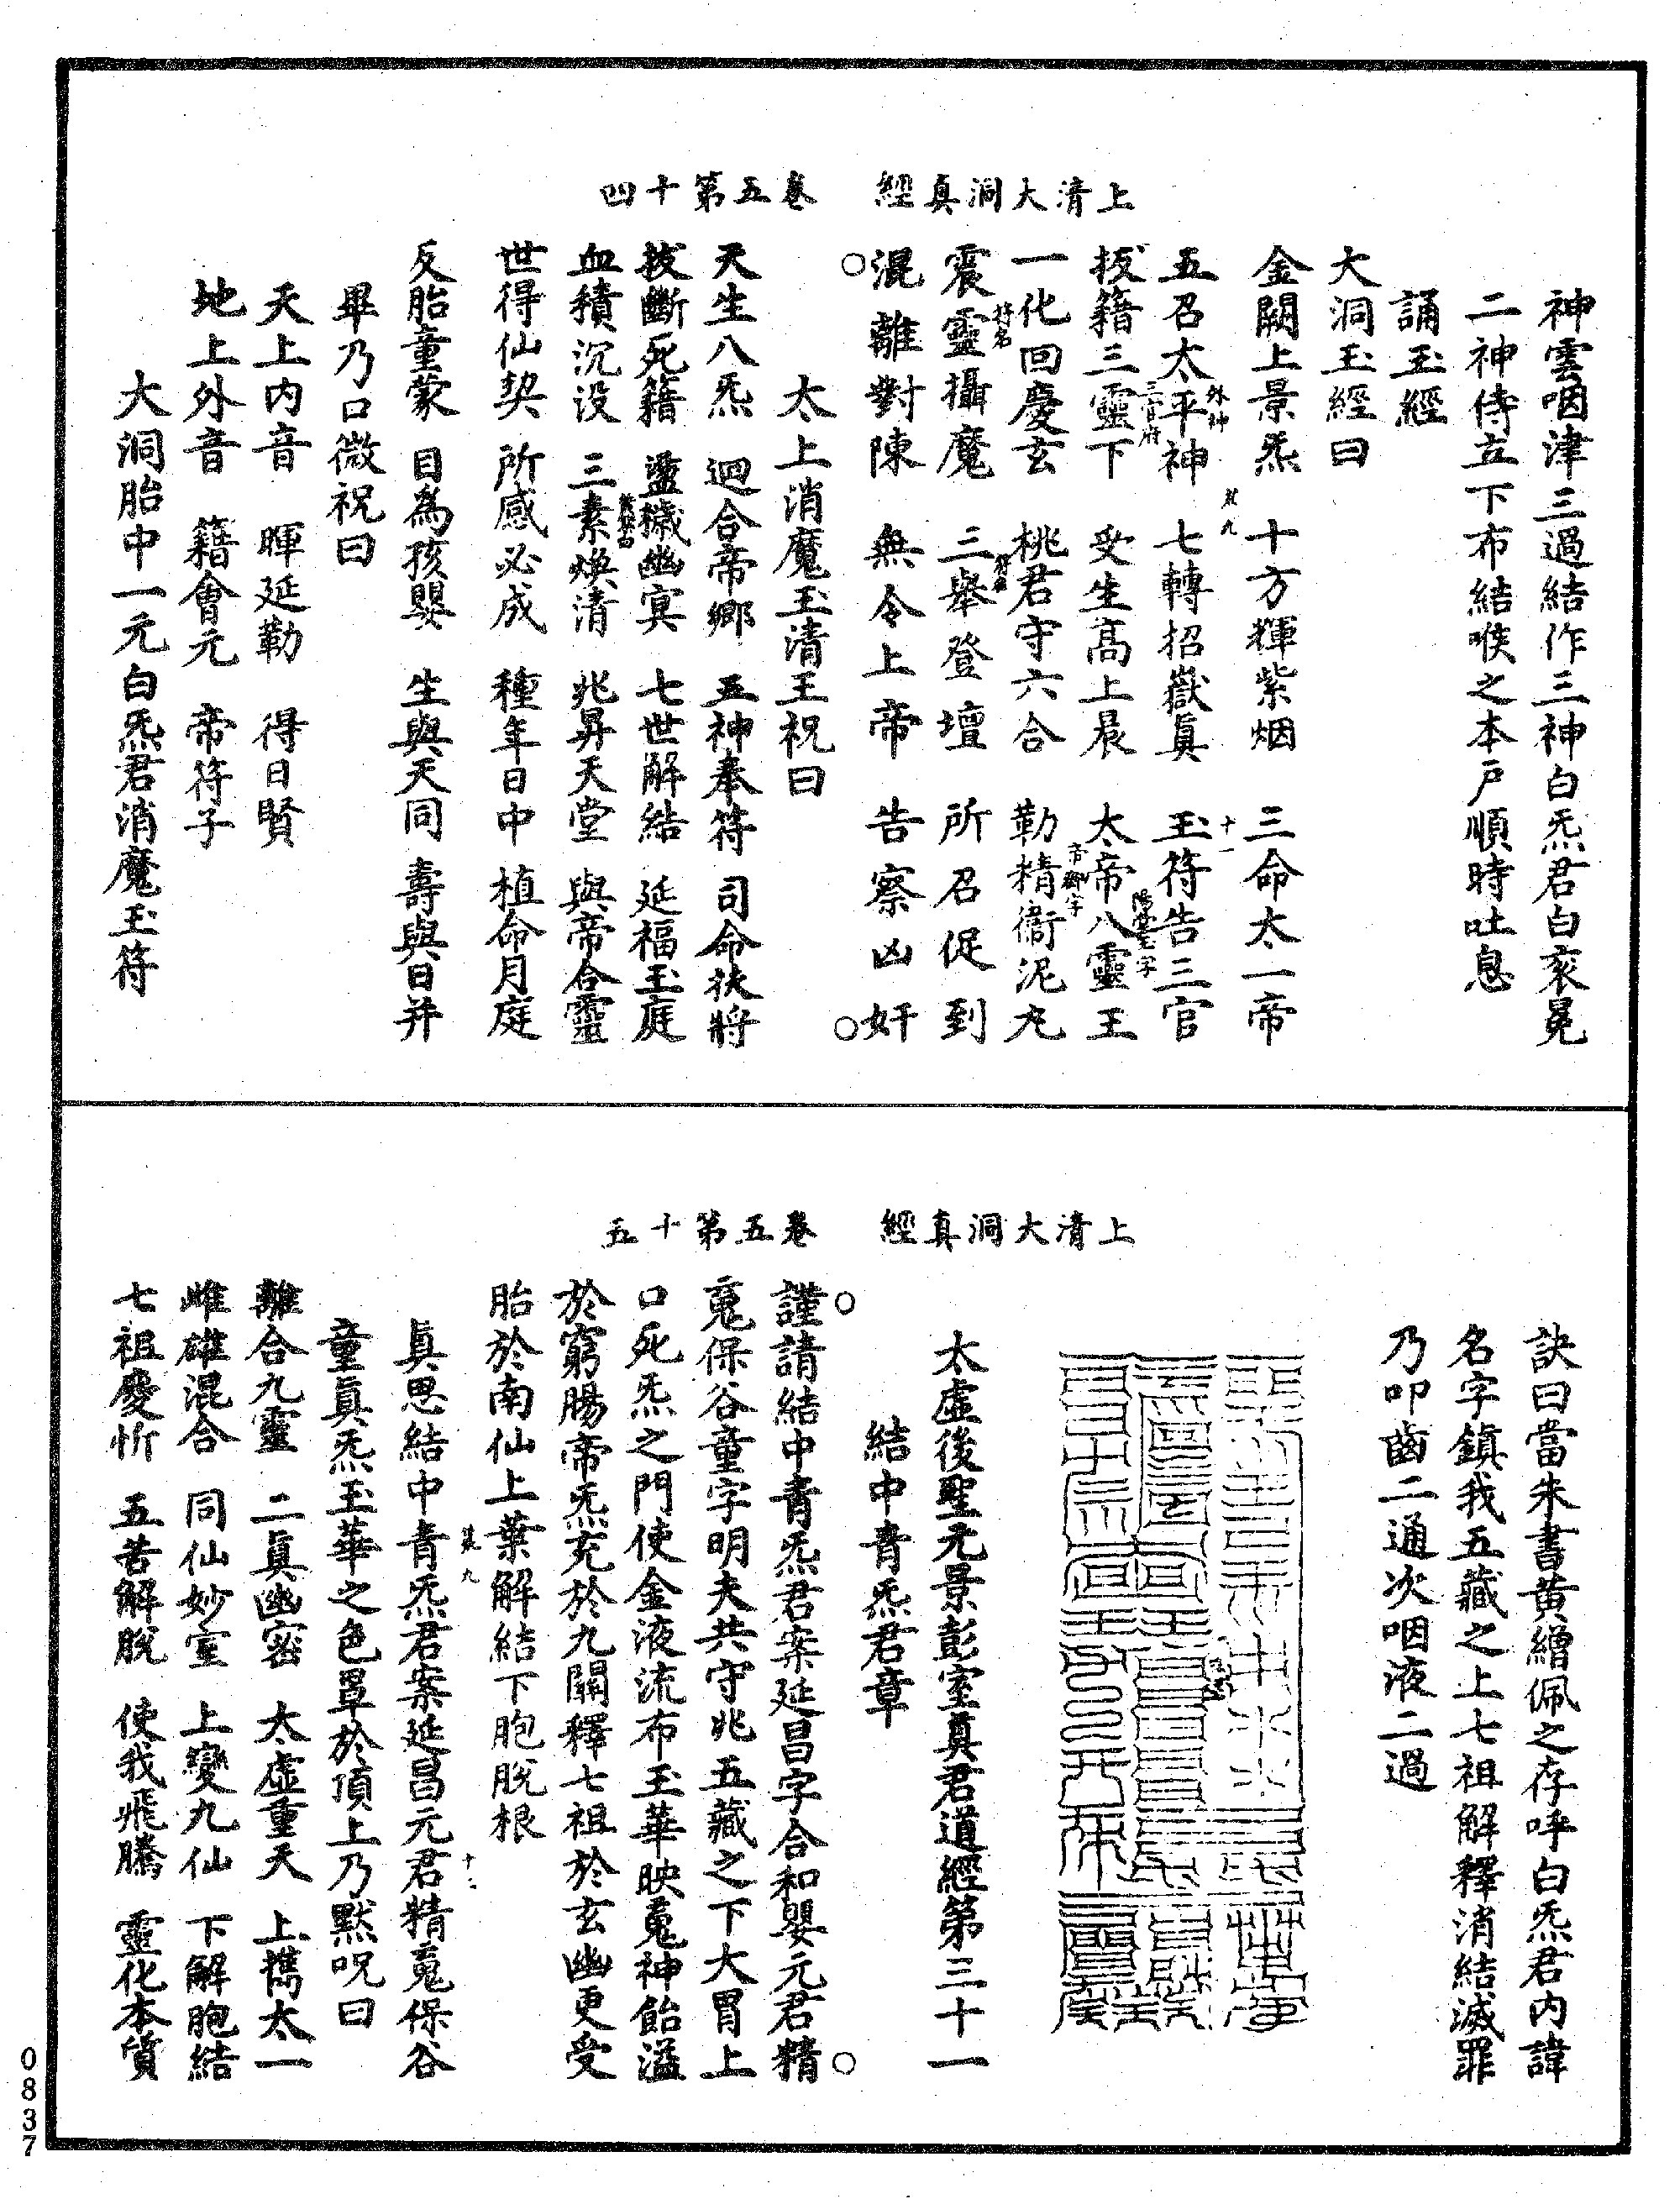 上清大洞真經　卷五第十四
神雲咽津三過結作三神白炁君白衮冕
二神侍立下布結喉之本户順時吐息
誦玉經
大洞玉經曰
金闕上景炁　十方輝紫烟　三命太一帝
五召太平神外神　七轉招嶽眞　玉符告三官
扳籍三靈下　受生高上晨　太帝八靈王
一化回慶玄　桃君守六合　勒精衞泥丸
震靈攝魔　三舉登壇　所召促到
混離對陳　無令上帝　告察凶奸
太上消魔玉清王祝曰
天生八炁　迴合帝鄉　五神奉符　司命扶將
拔斷死籍　盪穢幽冥　七世解結　延福玉庭
血積沉没　三素煥清　兆昇天堂　與帝合靈
世得仙契　所感必成　種年日中　植命月庭
反胎童蒙　目為孩嬰　生與天同　壽與日并
畢乃口微祝曰
天上内音　暉延勒　得日賢
地上外音　籍會元　帝符子
大洞胎中一元白炁君消魔玉符
上清大洞真經　卷五第十五
訣曰當朱書黄繒佩之存呼白炁君内諱
名字鎮我五藏之上七祖解釋消結滅罪
乃叩齒二通次咽液二過
太虛後聖元景彭室真君道經第三十一
結中青炁君章
謹請結中青炁君案延昌字合和嬰元君精
䰟保谷童字明夫共守兆五藏之下大胃上
口死炁之門使金液流布玉華映䰟神飴溢
於窮腸帝炁充於九關釋七祖於玄幽更受
胎於南仙上葉解結下胞脱根
眞思結中青炁君案延昌元君精䰟保谷
童眞炁玉華之色罩於頂上乃默呪曰
離合九靈　二眞幽密　太虛重天　上攜太一
雌雄混合　同仙妙室　上變九仙　下解胞結
七祖慶忻　五苦解脫　使我飛騰　靈化本質
0837